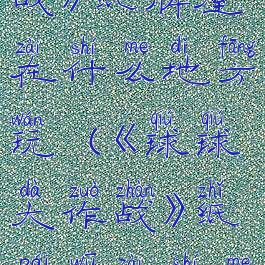 zài shí me dì fāng
在什么地方
wán qiú qiú
玩（《球球
dà zuò zhàn zhǐ
大作战》纸
pái wū zài shí me